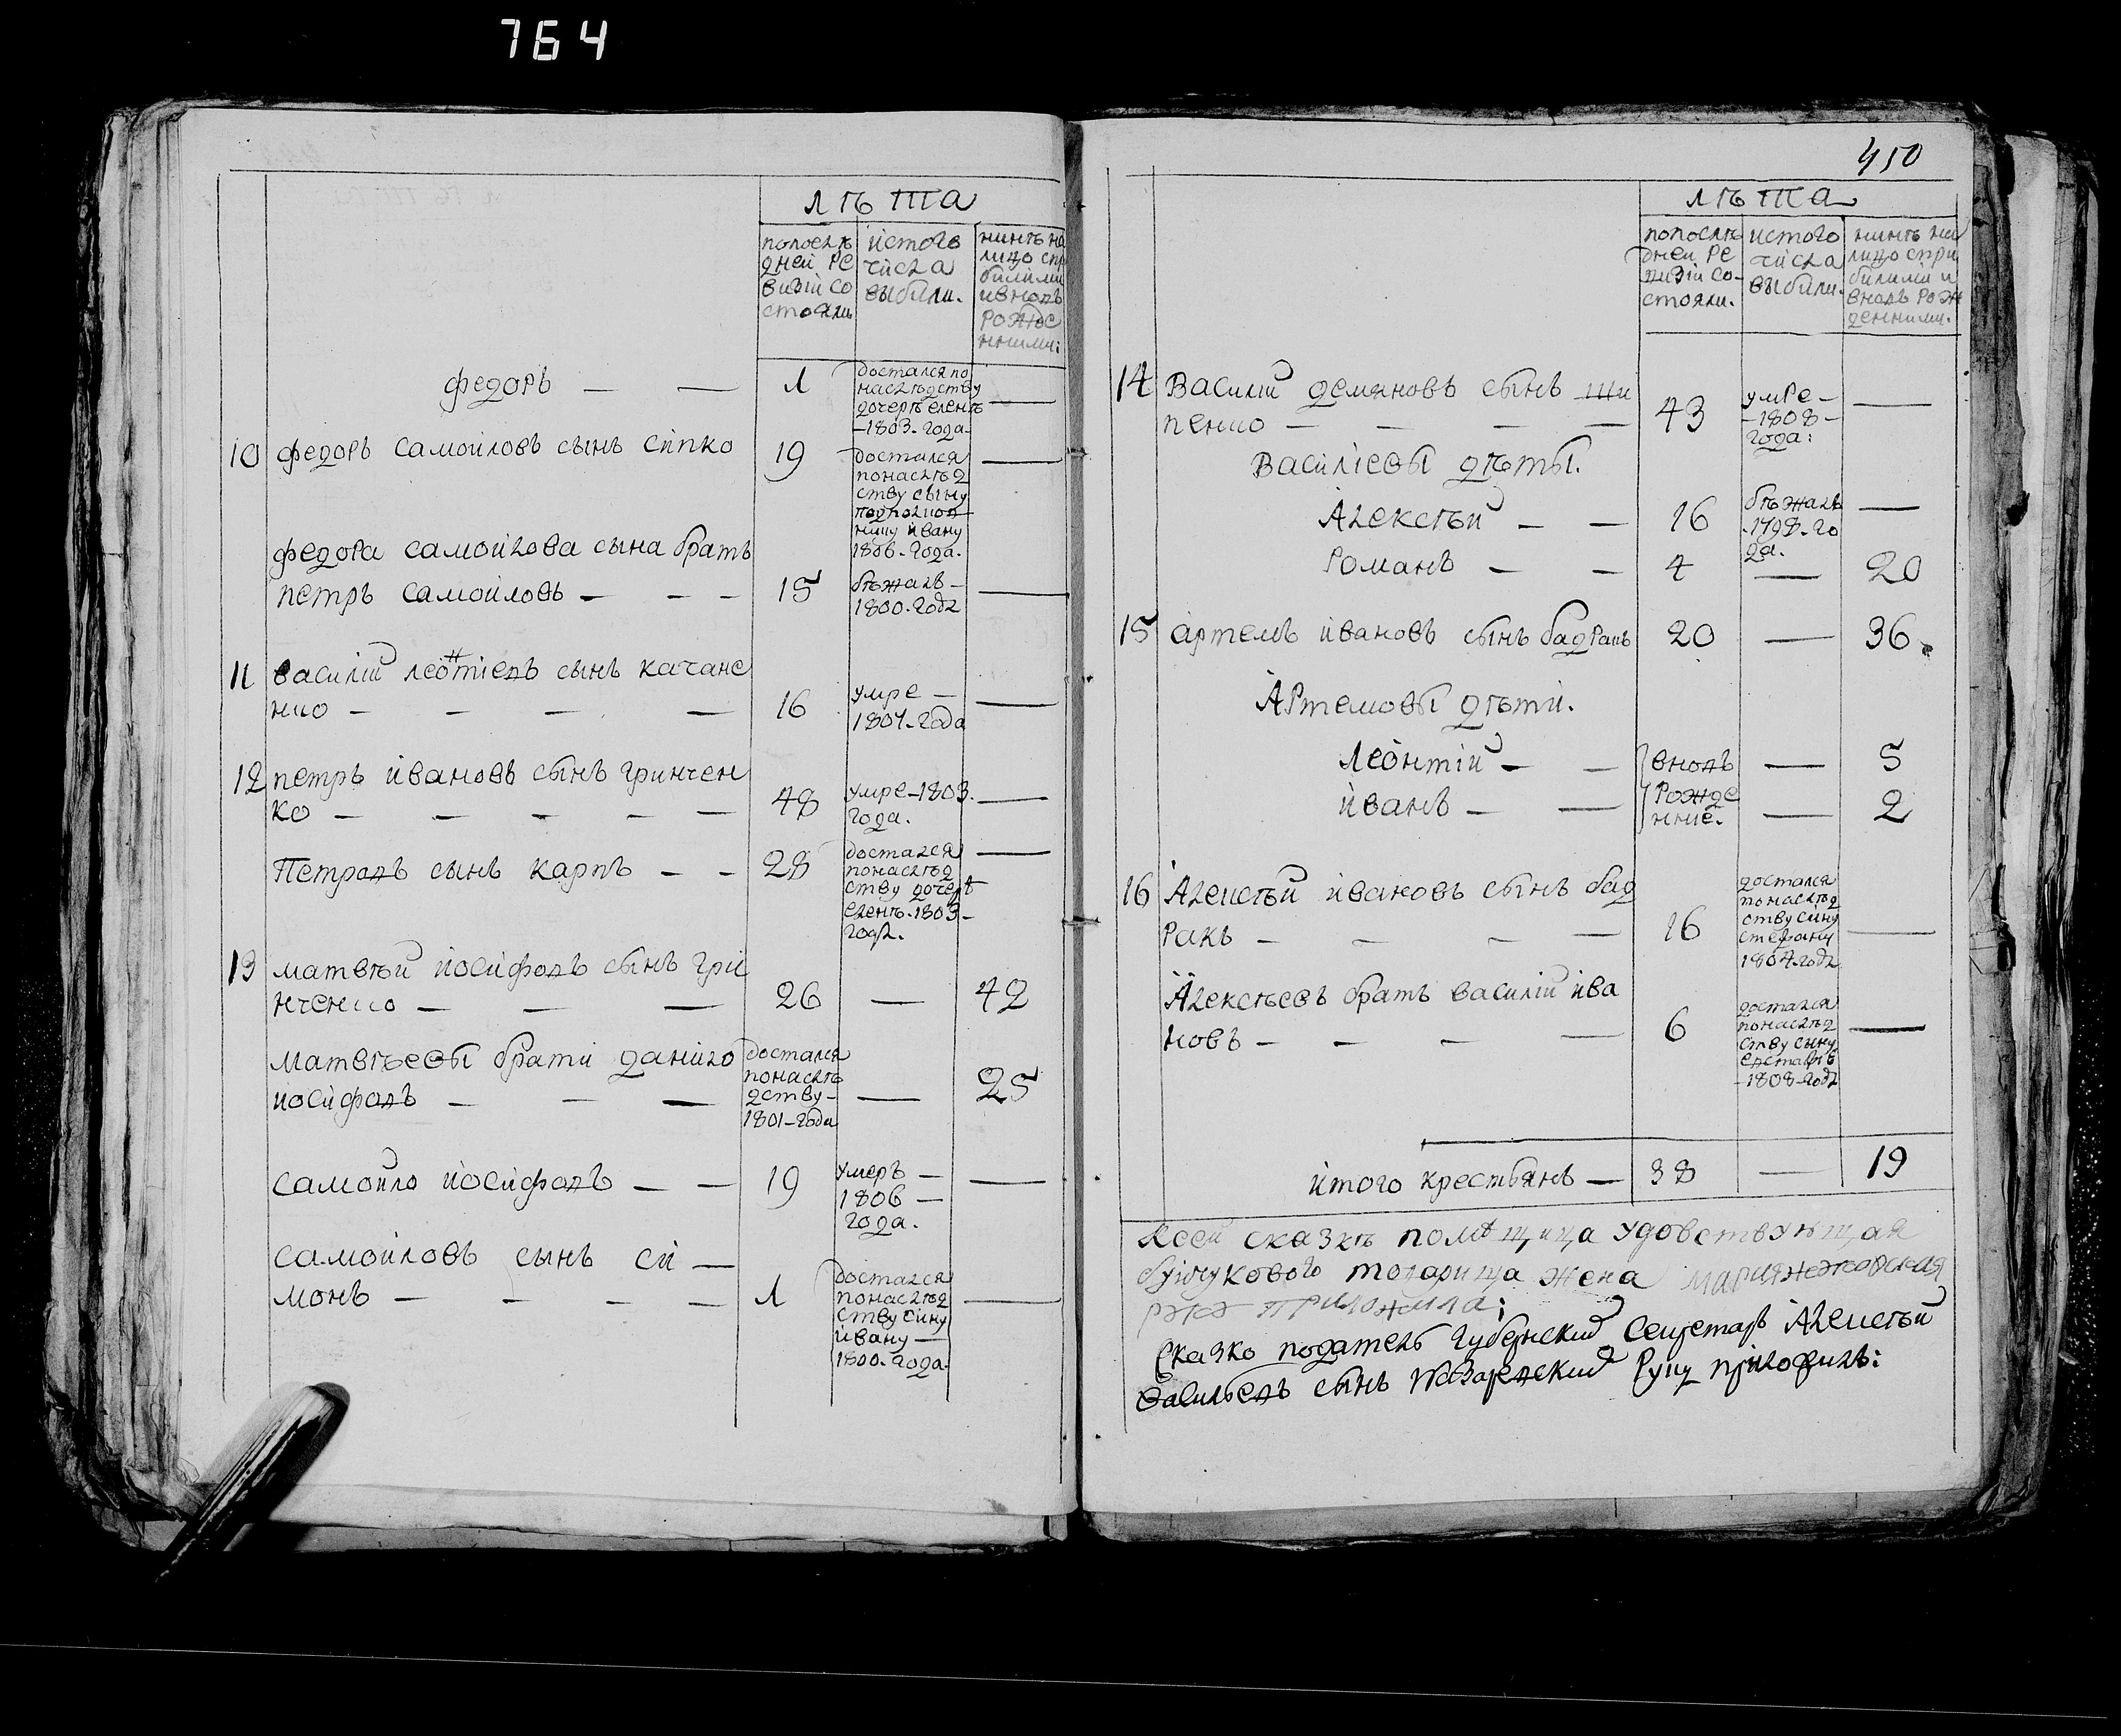 764
лѣта
попослѣ
дней ре
визіи со
стояли
истого
числа
выбили.
нинѣ на
лицо спр
билими
ивновъ
рожде
нними:
федоръ — —
1
достался по
наслѣдству
дочерѣ еленѣ
-1803. года.
—
10 федоръ самойловъ сынъ сипко
19
достался
понаслѣд
ству сыну
ничу ивану
1806. года.
—
федора самойлова сына братъ
петръ самойловъ — — —
15
бѣжалъ —
1800. года
—
11 василій леонтіевъ сынъ качане
нко — — — —
16
умре —
1807. года
—
12 петръ ивановъ сынъ гринчен
ко — — — — —
48
умре — 1803.
года.
—
Петровъ сынъ карпъ — —
28
достался
понаслѣд
ству дочерѣ
еленѣ. 1803 —
года.
—
13 матвѣй йосифовъ сынъ гри
нченко — — —
26
—
42
матвѣевы брати данило
йосифовъ — — —
достался
понаслѣ
дству —
1801 — года
—
25
самойло йосифовъ — —
19
умеръ —
1806 —
года.
—
самойловъ сынъ си —
монъ — — — —
1
достался
понаслѣд
ству сину
ивану —
1800. года.
—
450
лѣта
попослѣ
дней ре
визіи со-
стояли.
истого
числа
выбили.
нинѣ на
лицо спри
билими и
вновъ рож
денними.
14 Василій демяновъ сынъ ши
пенко — — — —
43
умре —
— 1808 —
года:
—
Василіевы дѣты.
Алексѣй — —
16
бѣжалъ
. 1798. го
да.
—
Романъ — —
4
—
20
15 артемъ ивановъ сынъ бадракъ
20
—
36.
Артемовы дѣти.
Леонтій — —
вновъ
—
5
иванъ — —
рожде
нние.
—
2
16 Алексѣй ивановъ сынъ бад
ракъ — — — —
16
достался
понаслѣд
ству сину
стефану
1804. года
—
Алексѣевъ братъ василій ива
новъ — — — —
6
достался
понаслѣд
ству сыну
евстафѣ
— 1808 — года
—
итого крестьянъ —
38
—
19
Ксей сказкѣ помѣщица удовствующая
бунчукового товарища жена мария
приложила;
Сказко податель губернский Секретарь Алексѣй
Василіевъ сынъ Руку приложилъ: